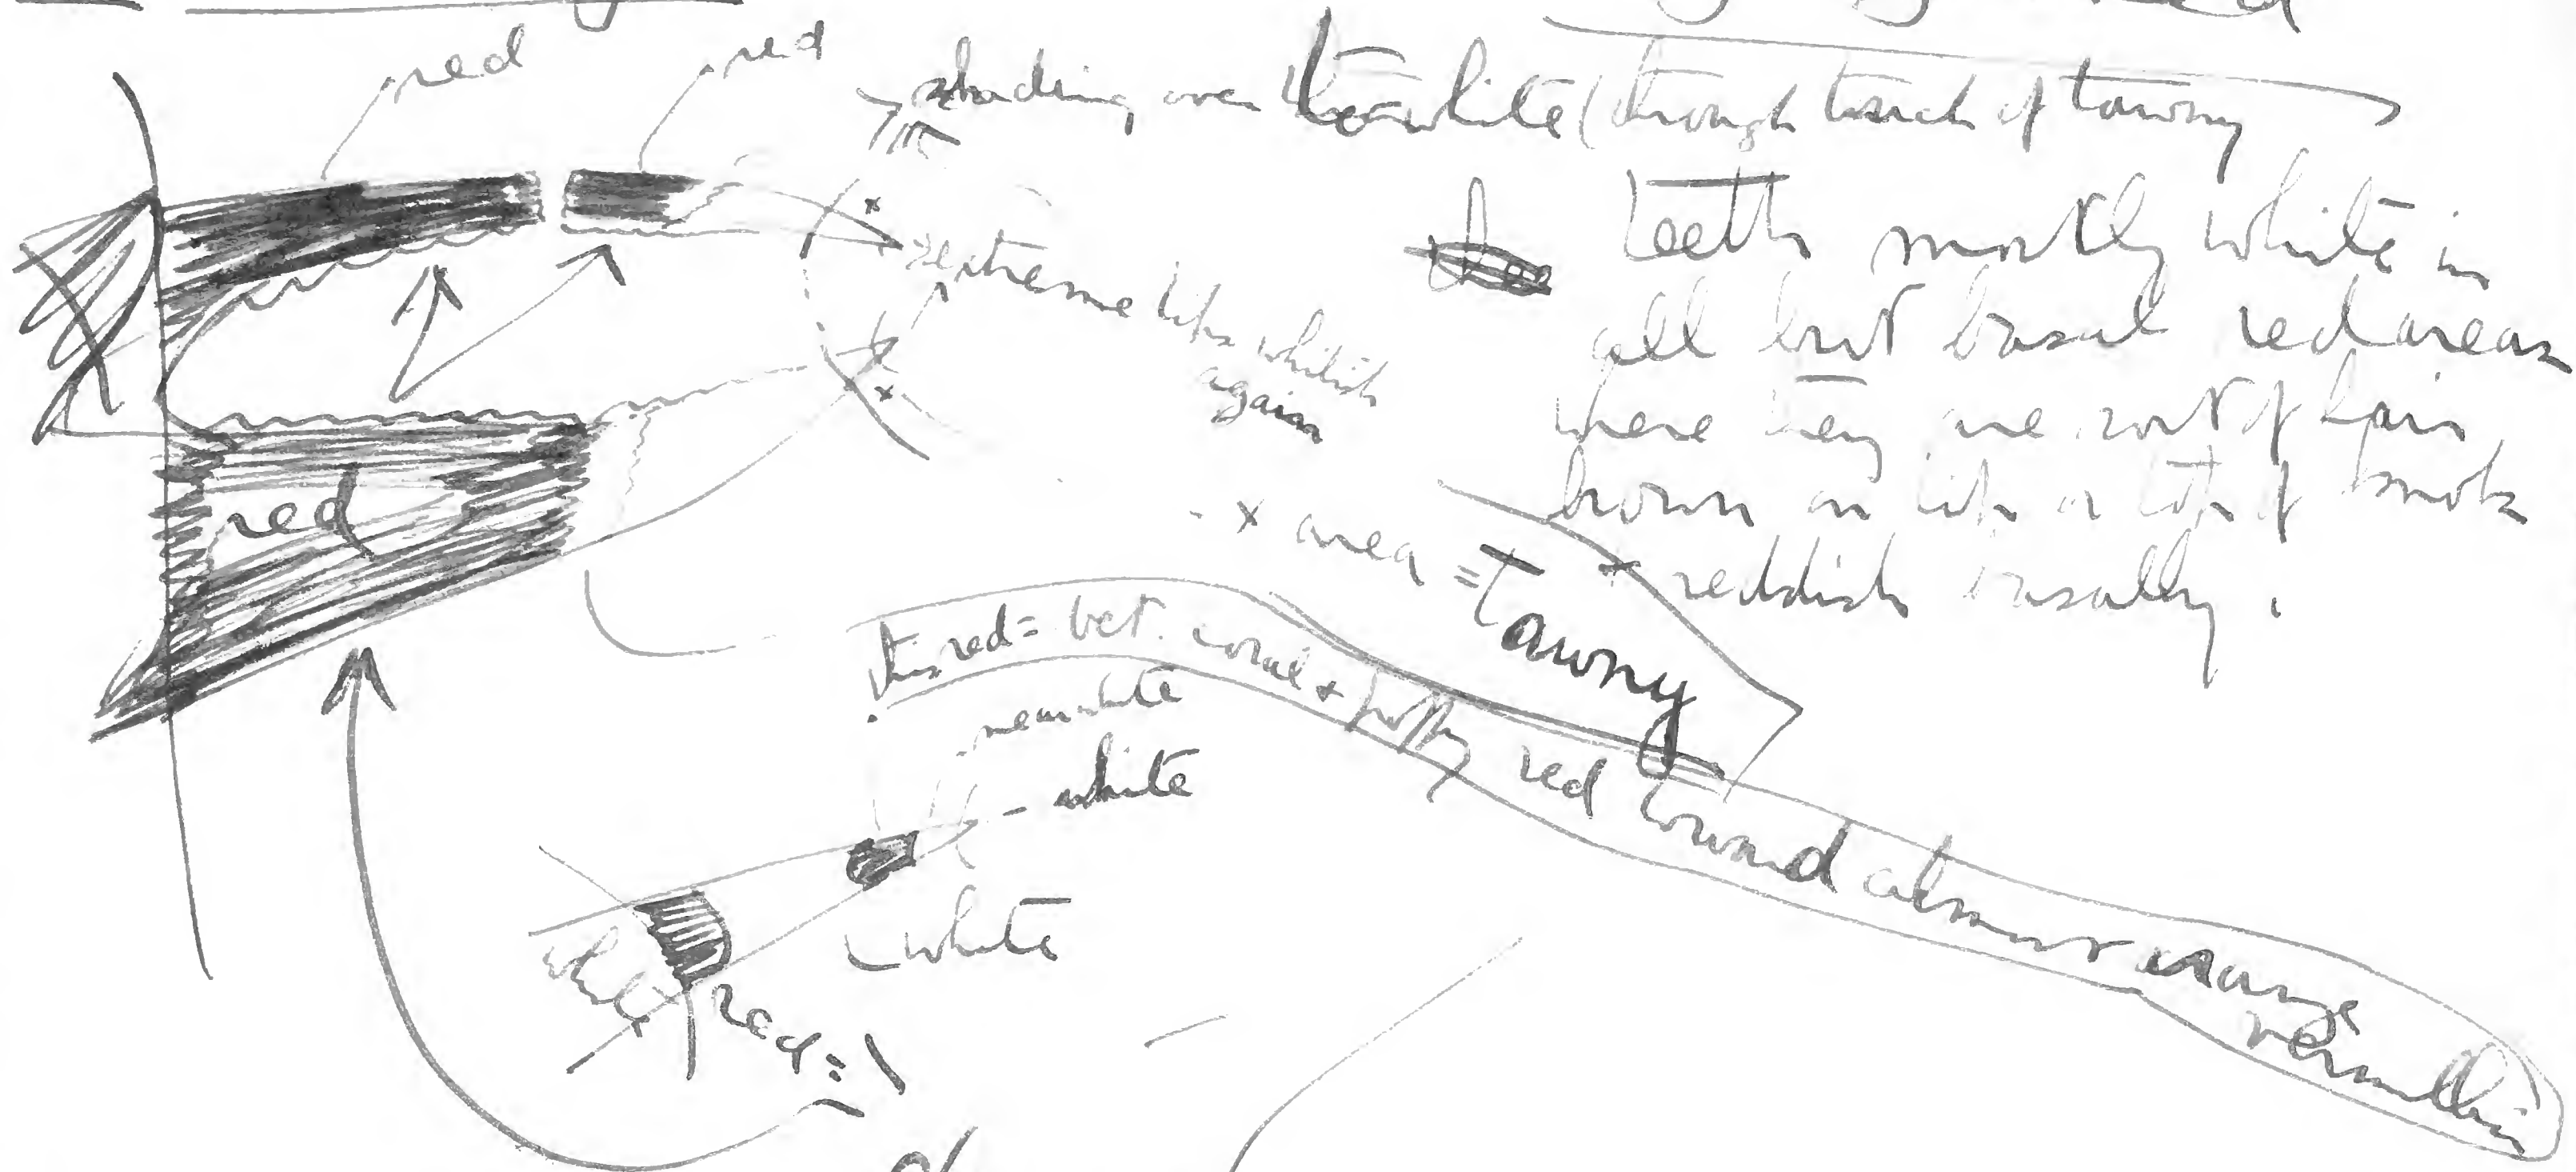 red
red
shading over to white (through touch of tawny
extreme tips whitish
again
teeth mostly white in
all but basal red areas
where they are sort of
brown on tip or top of
+ reddish basally.
red
x area = Tawny
this red = bet. coral + puffy red toward almost orange
vermillion
near white
white
white
red =